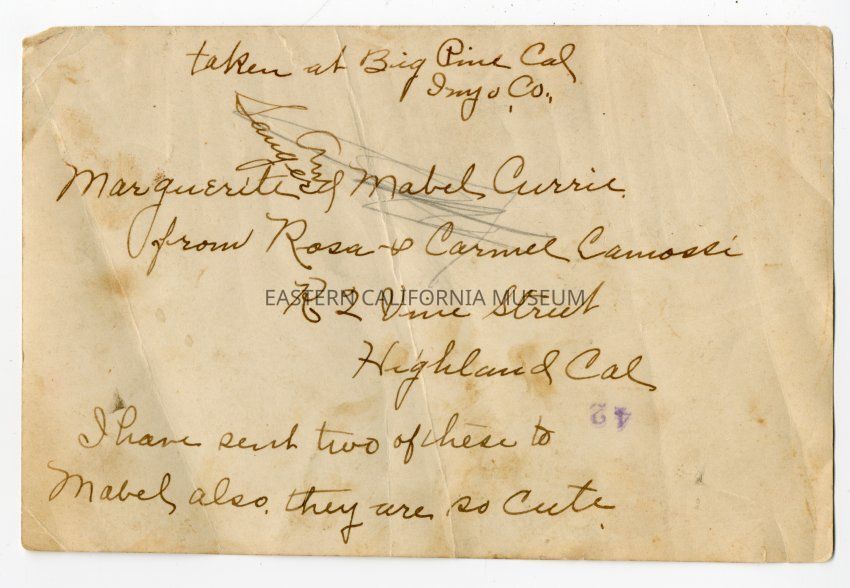 taken at Big Pine Cal
Inyo, Co.,
Sanger
Marguerite & Mabel Currie.
from Rosa & Carmel Camossi
EASTERN CALIFORNIA MUSEUM
R 2 Vine Street
Highland Cal
42
I have sent two of these to
Mabel also. they are so cute.